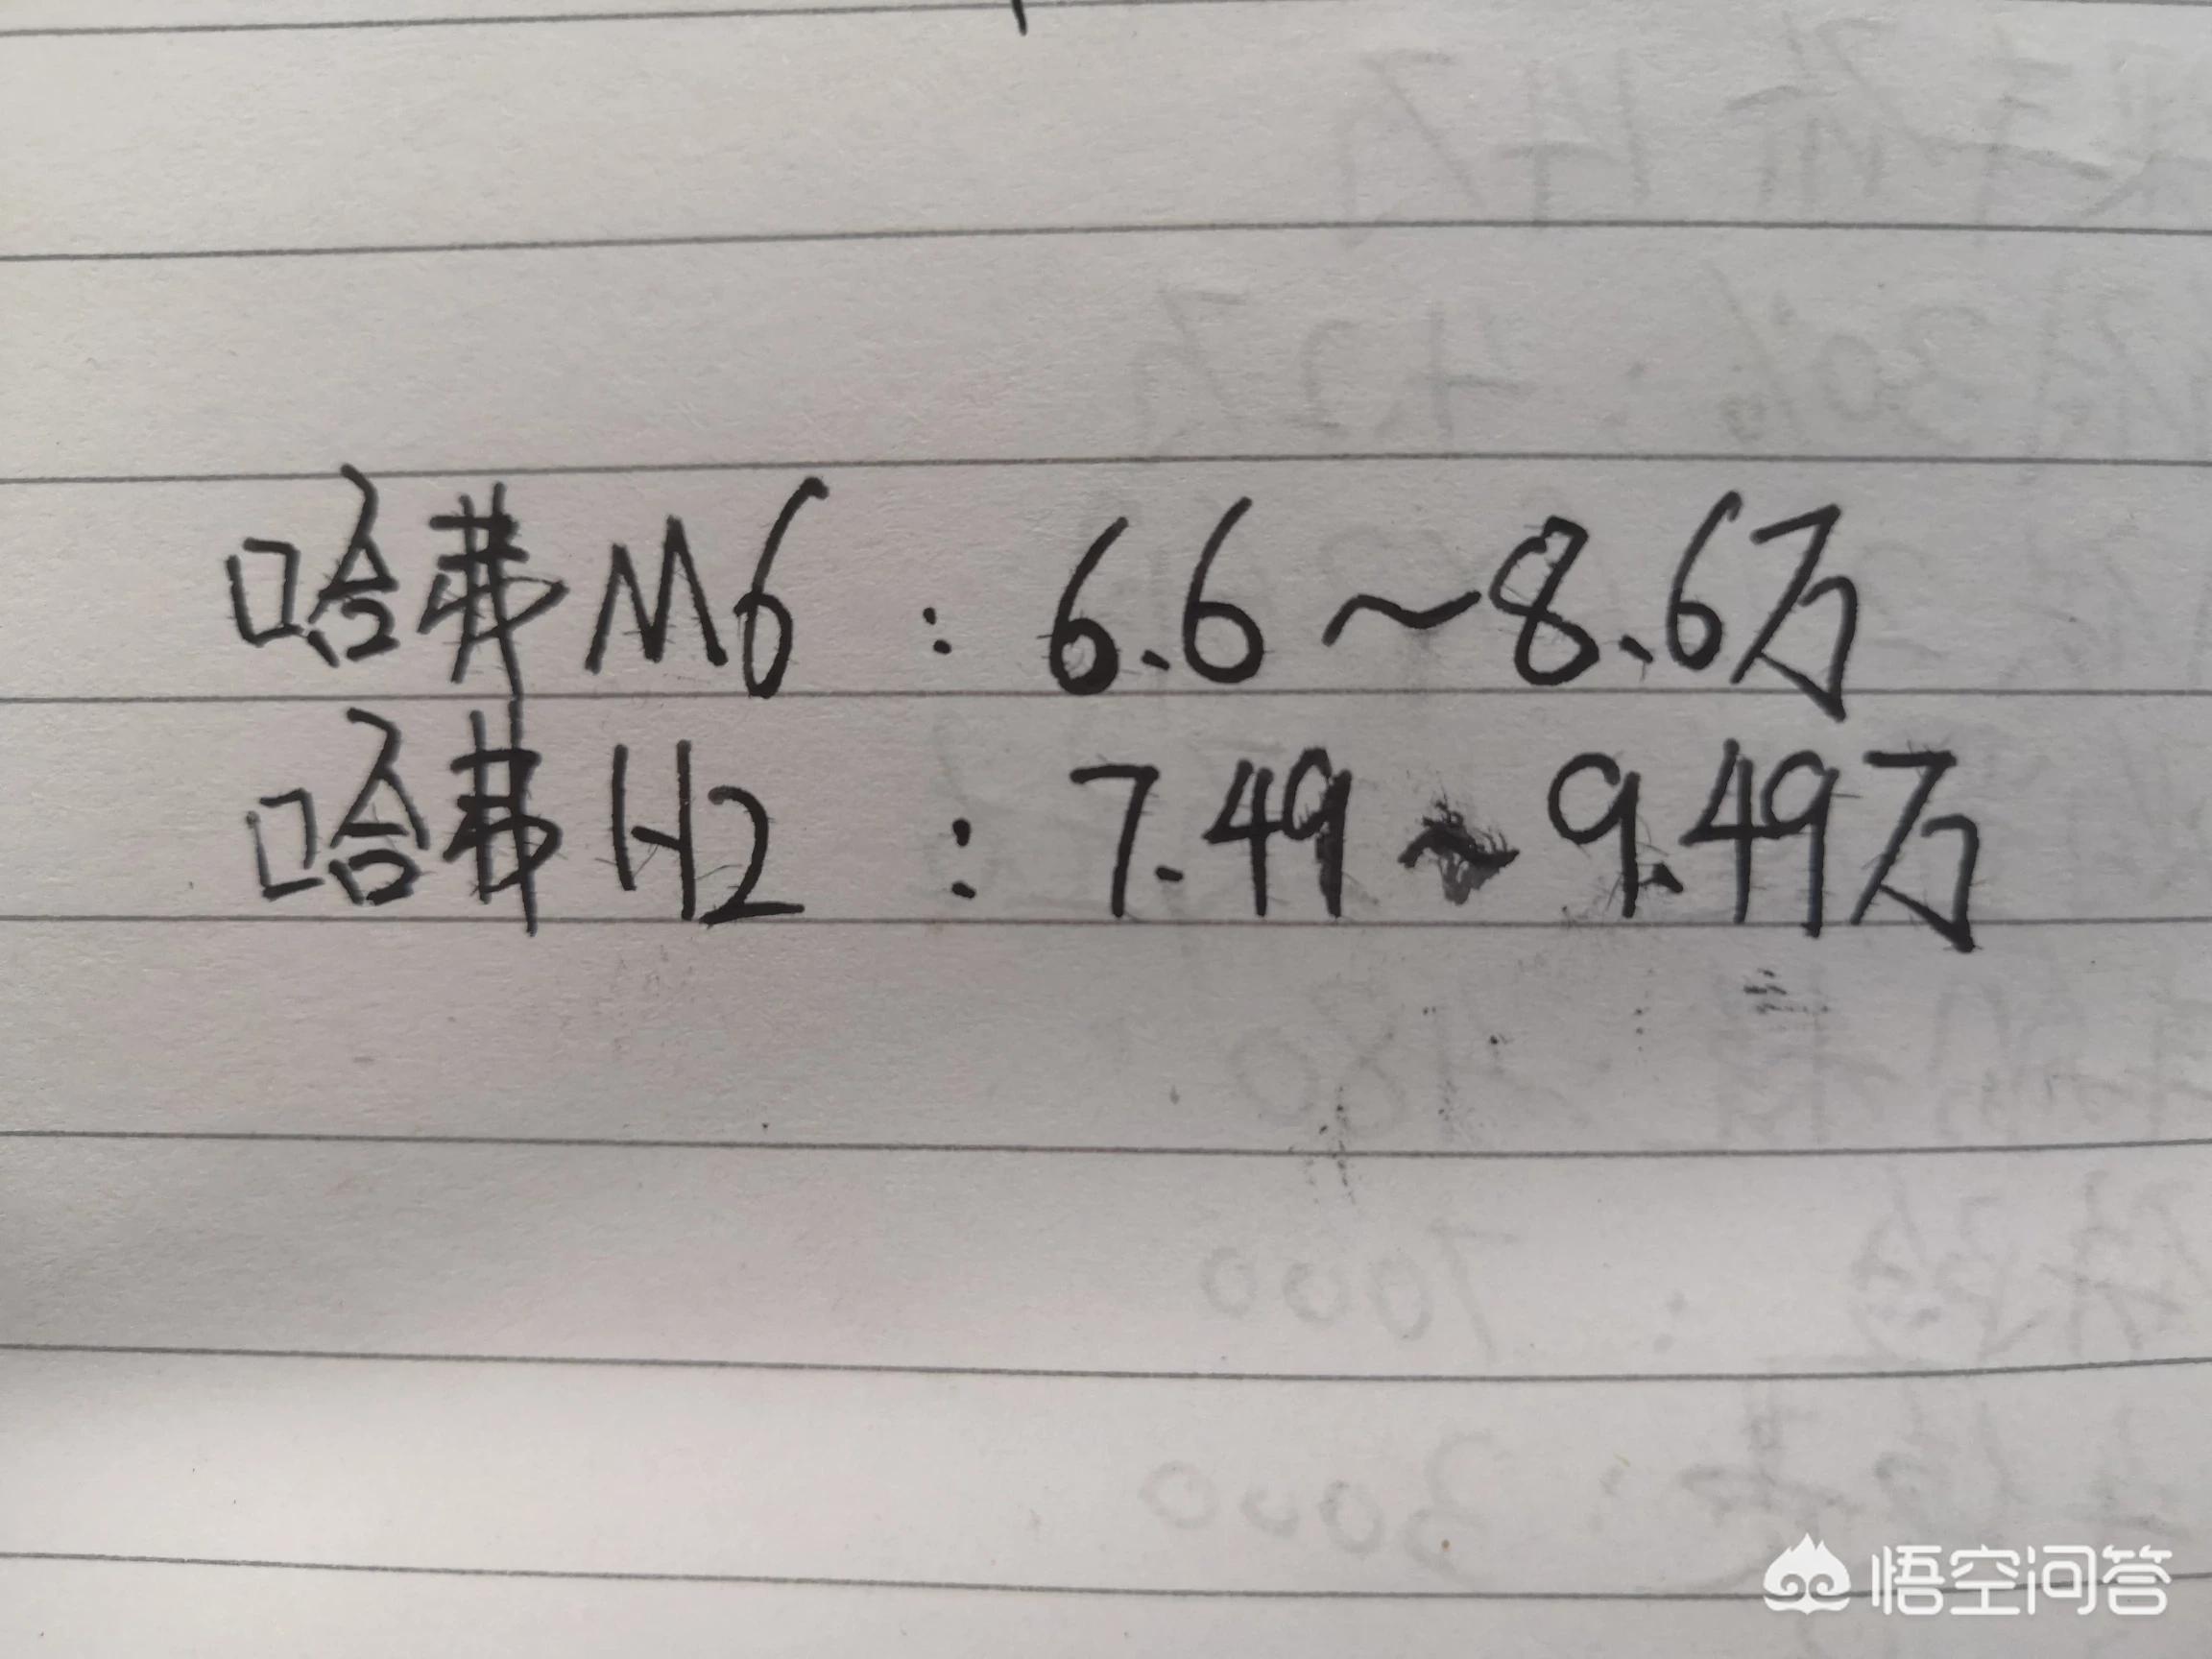 哈弗M6 : 6.6~8.6万
哈弗H2 : 7.49~9.49万
悟空问答